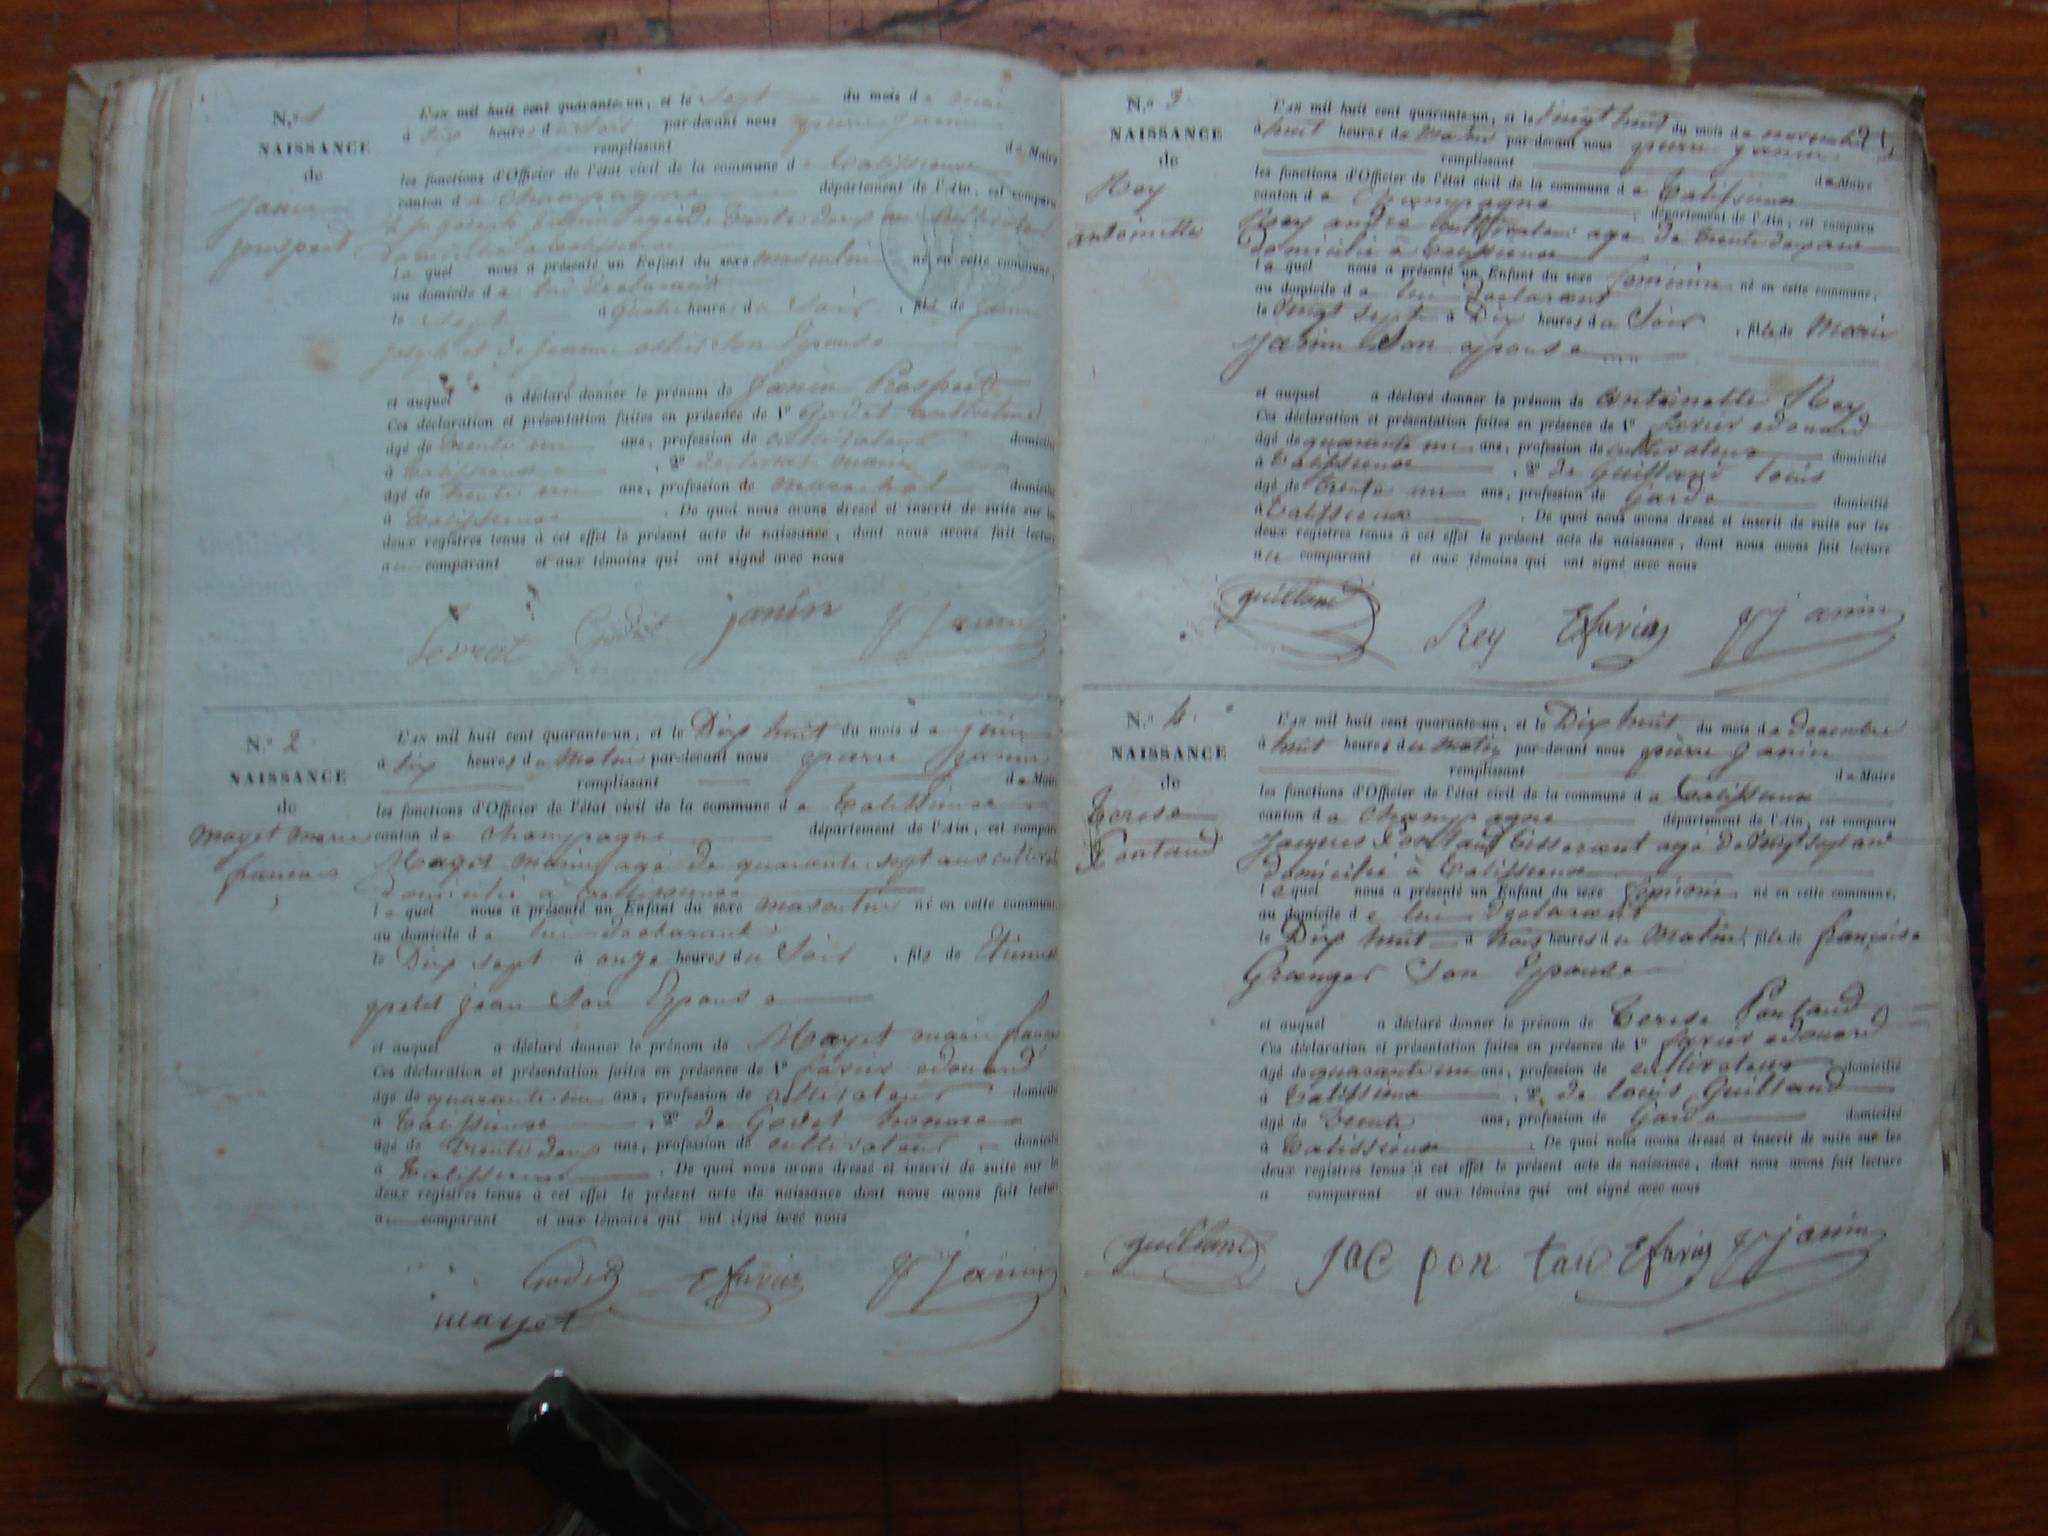 N.º 1
NAISSANCE
de
Janin
prospert
L'AN mil huit cent quarante-un, et le sept du mois de mai
à six heures du soir par-devant nous pierre Janin
remplissant de Maire
les fonctions d'Officier de l'état civil de la commune de Talissieux
canton de Champagne département de l'Ain, est comparu
joseph Janin agé de trente deux ans cultivateur
domicilié à Talissieux
lequel nous a présenté un Enfant du sexe masculin né en cette commune,
au domicile de lui déclarant
le sept à quatre heures du soir, fils de Janin
joseph et de jeanne son Epouse
et auquel a déclaré donner le prénom de Janin Prospert
Ces déclaration et présentation faites en présence de 1º Godet anthelme
âgé de trente un ans, profession de cultivateur domicilié
à Talissieux, 2º de
âgé de trente un ans, profession de marechal domicilié
à Talissieux. De quoi nous avons dressé et inscrit de suite sur les
deux registres tenus à cet effet le présent acte de naissance, dont nous avons fait lecture
au comparant et aux témoins qui ont signé avec nous
janin Janin
N.º 2
NAISSANCE
de
Mayet marin
francois
L'AN mil huit cent quarante-un, et le Dix huit du mois de juin
à six heures du matin par-devant nous pierre Janin
remplissant de Maire
les fonctions d'Officier de l'état civil de la commune de Talissieux
canton de Champagne département de l'Ain, est comparu
Mayet marin agé de quarante sept ans cultivateur
domicilié à Talissieux
lequel nous a présenté un Enfant du sexe masculin né en cette commune
au domicile de lui déclarant
le Dix sept à onze heures du Soir, fils de Etiennette
petit jean Son Epouse
et auquel a déclaré donner le prénom de Mayet marin françois
Ces déclaration et présentation faites en présence de 1º favier edouard
âgé de quarante un ans, profession de cultivateur domicilié
à Talissieux, 2º de Godet
âgé de trente deux ans, profession de cultivateur domicilié
à Talissieux. De quoi nous avons dressé et inscrit de suite sur les
deux registres tenus à cet effet le présent acte de naissance dont nous avons fait lecture
au comparant et aux témoins qui ont signé avec nous
Godet E favier Janin
mayet
N.º 3
NAISSANCE
de
Rey
antoinette
L'AN mil huit cent quarante-un, et le vingt huit du mois de novembre
à huit heures du matin par-devant nous pierre Janin
remplissant de Maire
les fonctions d'Officier de l'état civil de la commune de Talissieux
canton de Champagne, département de l'Ain, est comparu
Rey andré cultivateur agé de trente deux ans
domicilié à Talissieux
lequel nous a présenté un Enfant du sexe feminin né en cette commune,
au domicile de lui declarant
le vingt sept à Dix heures du Soir, fille de Marie
Janin Son epouse
et auquel a déclaré donner le prénom de antoinette Rey
Ces déclaration et présentation faites en présence de 1º favier edouard
âgé de quarante un ans, profession de cultivateur domicilié
à Talissieux, 2º de Guilland louis
âgé de trente un ans, profession de Garde domicilié
à Talissieux. De quoi nous avons dressé et inscrit de suite sur les
deux registres tenus à cet effet le présent acte de naissance, dont nous avons fait lecture
au comparant et aux témoins qui ont signé avec nous
guilland Rey E favier Janin
N.º 4
NAISSANCE
de
Terese
Pontaud
L'AN mil huit cent quarante-un, et le Dix huit du mois de decembre
à huit heures du matin par-devant nous pierre Janin
remplissant de Maire
les fonctions d'Officier de l'état civil de la commune de Talissieux
canton de Champagne département de l'Ain, est comparu
Jacques Pontaud tisserant agé de vingt sept ans
domicilié à Talissieux
lequel nous a présenté un Enfant du sexe feminin né en cette commune,
au domicile de lui declarant
le Dix huit à trois heures du matin, fille de françoise
Granger Son Epouse
et auquel a déclaré donner le prénom de Terese Pontaud
Ces déclaration et présentation faites en présence de 1º favier edouard
âgé de quarante un ans, profession de cultivateur domicilié
à Talissieux, 2º de louis Guilland
âgé de trente ans, profession de Garde domicilié
à Talissieux. De quoi nous avons dressé et inscrit de suite sur les
deux registres tenus à cet effet le présent acte de naissance, dont nous avons fait lecture
a comparant et aux témoins qui ont signé avec nous
guilland jac pon tau E favier Janin